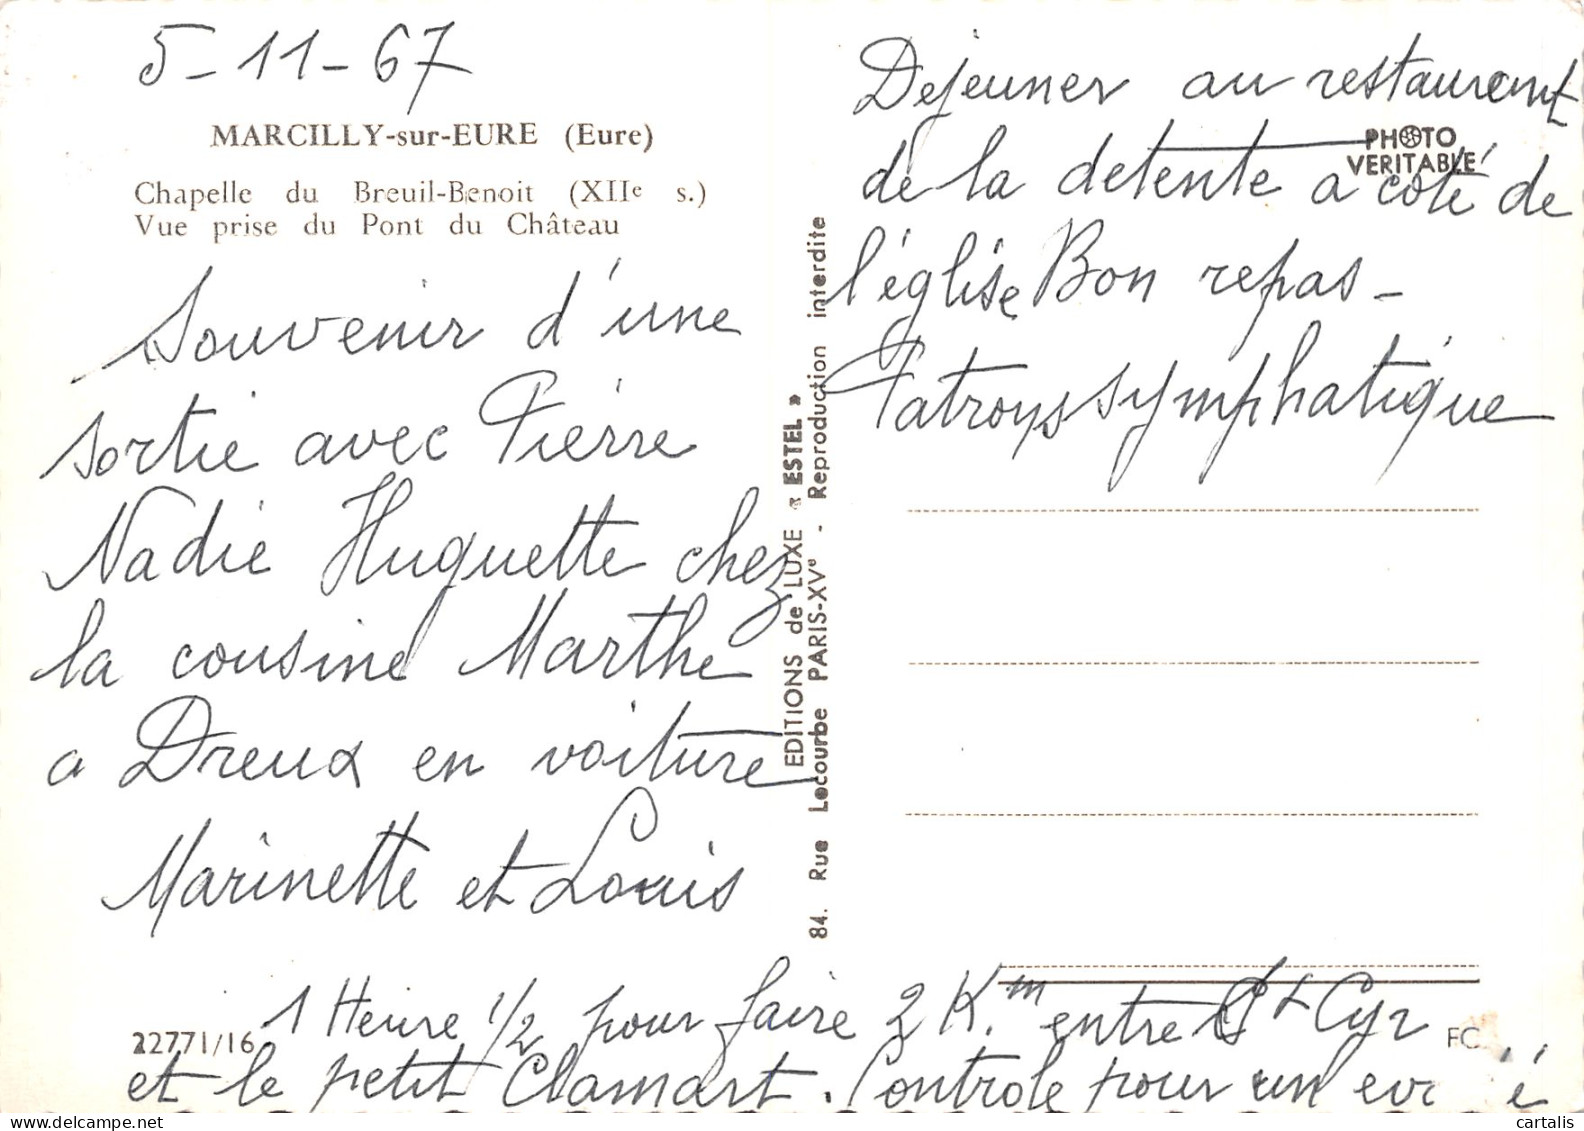 5-11-67
MARCILLY-sur-EURE (Eure)
Chapelle du Breuil-Benoit (XIIe s.)
Vue prise du Pont du Château
Souvenir d'une
sortie avec Pierre
Nadie Huguette chez
la cousine Marthe
a Dreux en voiture
Marinette et Louis
EDITIONS de LUXE « ESTEL »
84. Rue Lecourbe PARIS-XVe - Reproduction interdite
Dejeuner au restaurent
PHOTO
VERITABLE
de la detente a coté de
l'église Bon repas -
Patrons symphatique
1 Heure 1/2 pour faire 2 K.m entre St Cyr
22771/16
FC
et le petit Clamart. Controle pour un
delcampe.net
cartalis